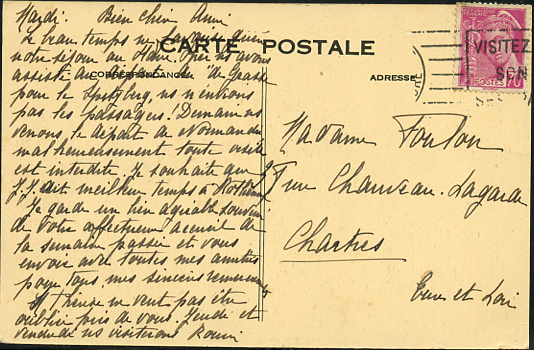 Mardi. Bien Chère Amie
Le beau temps ne favorise guère
notre séjour au Havre. Hier ns avons
CARTE POSTALE
assisté au départ de
CORRESPONDANCE
ADRESSE
pour le Spitzberg, ns n'envions
pas les passagers! Demain ns
venons, le départ du Normandie
malheureusement toute visite
est interdite. Je souhaite que
J.J. ait meilleur temps à
Je garde un bien agréable souvenir
de votre affectueux accueil de
la semaine passée et vous
envoie avec toutes mes amitiés
pour tous mes sincères remerciements
Thérèse ne veut pas être
oubliée près de vous. Jeudi et
vendredi ns visiterons Rouen
VISITEZ
SON
POSTES
70
Madame Foulon
rue Chauveau-Lagarde
Chartres
Eure et Loir